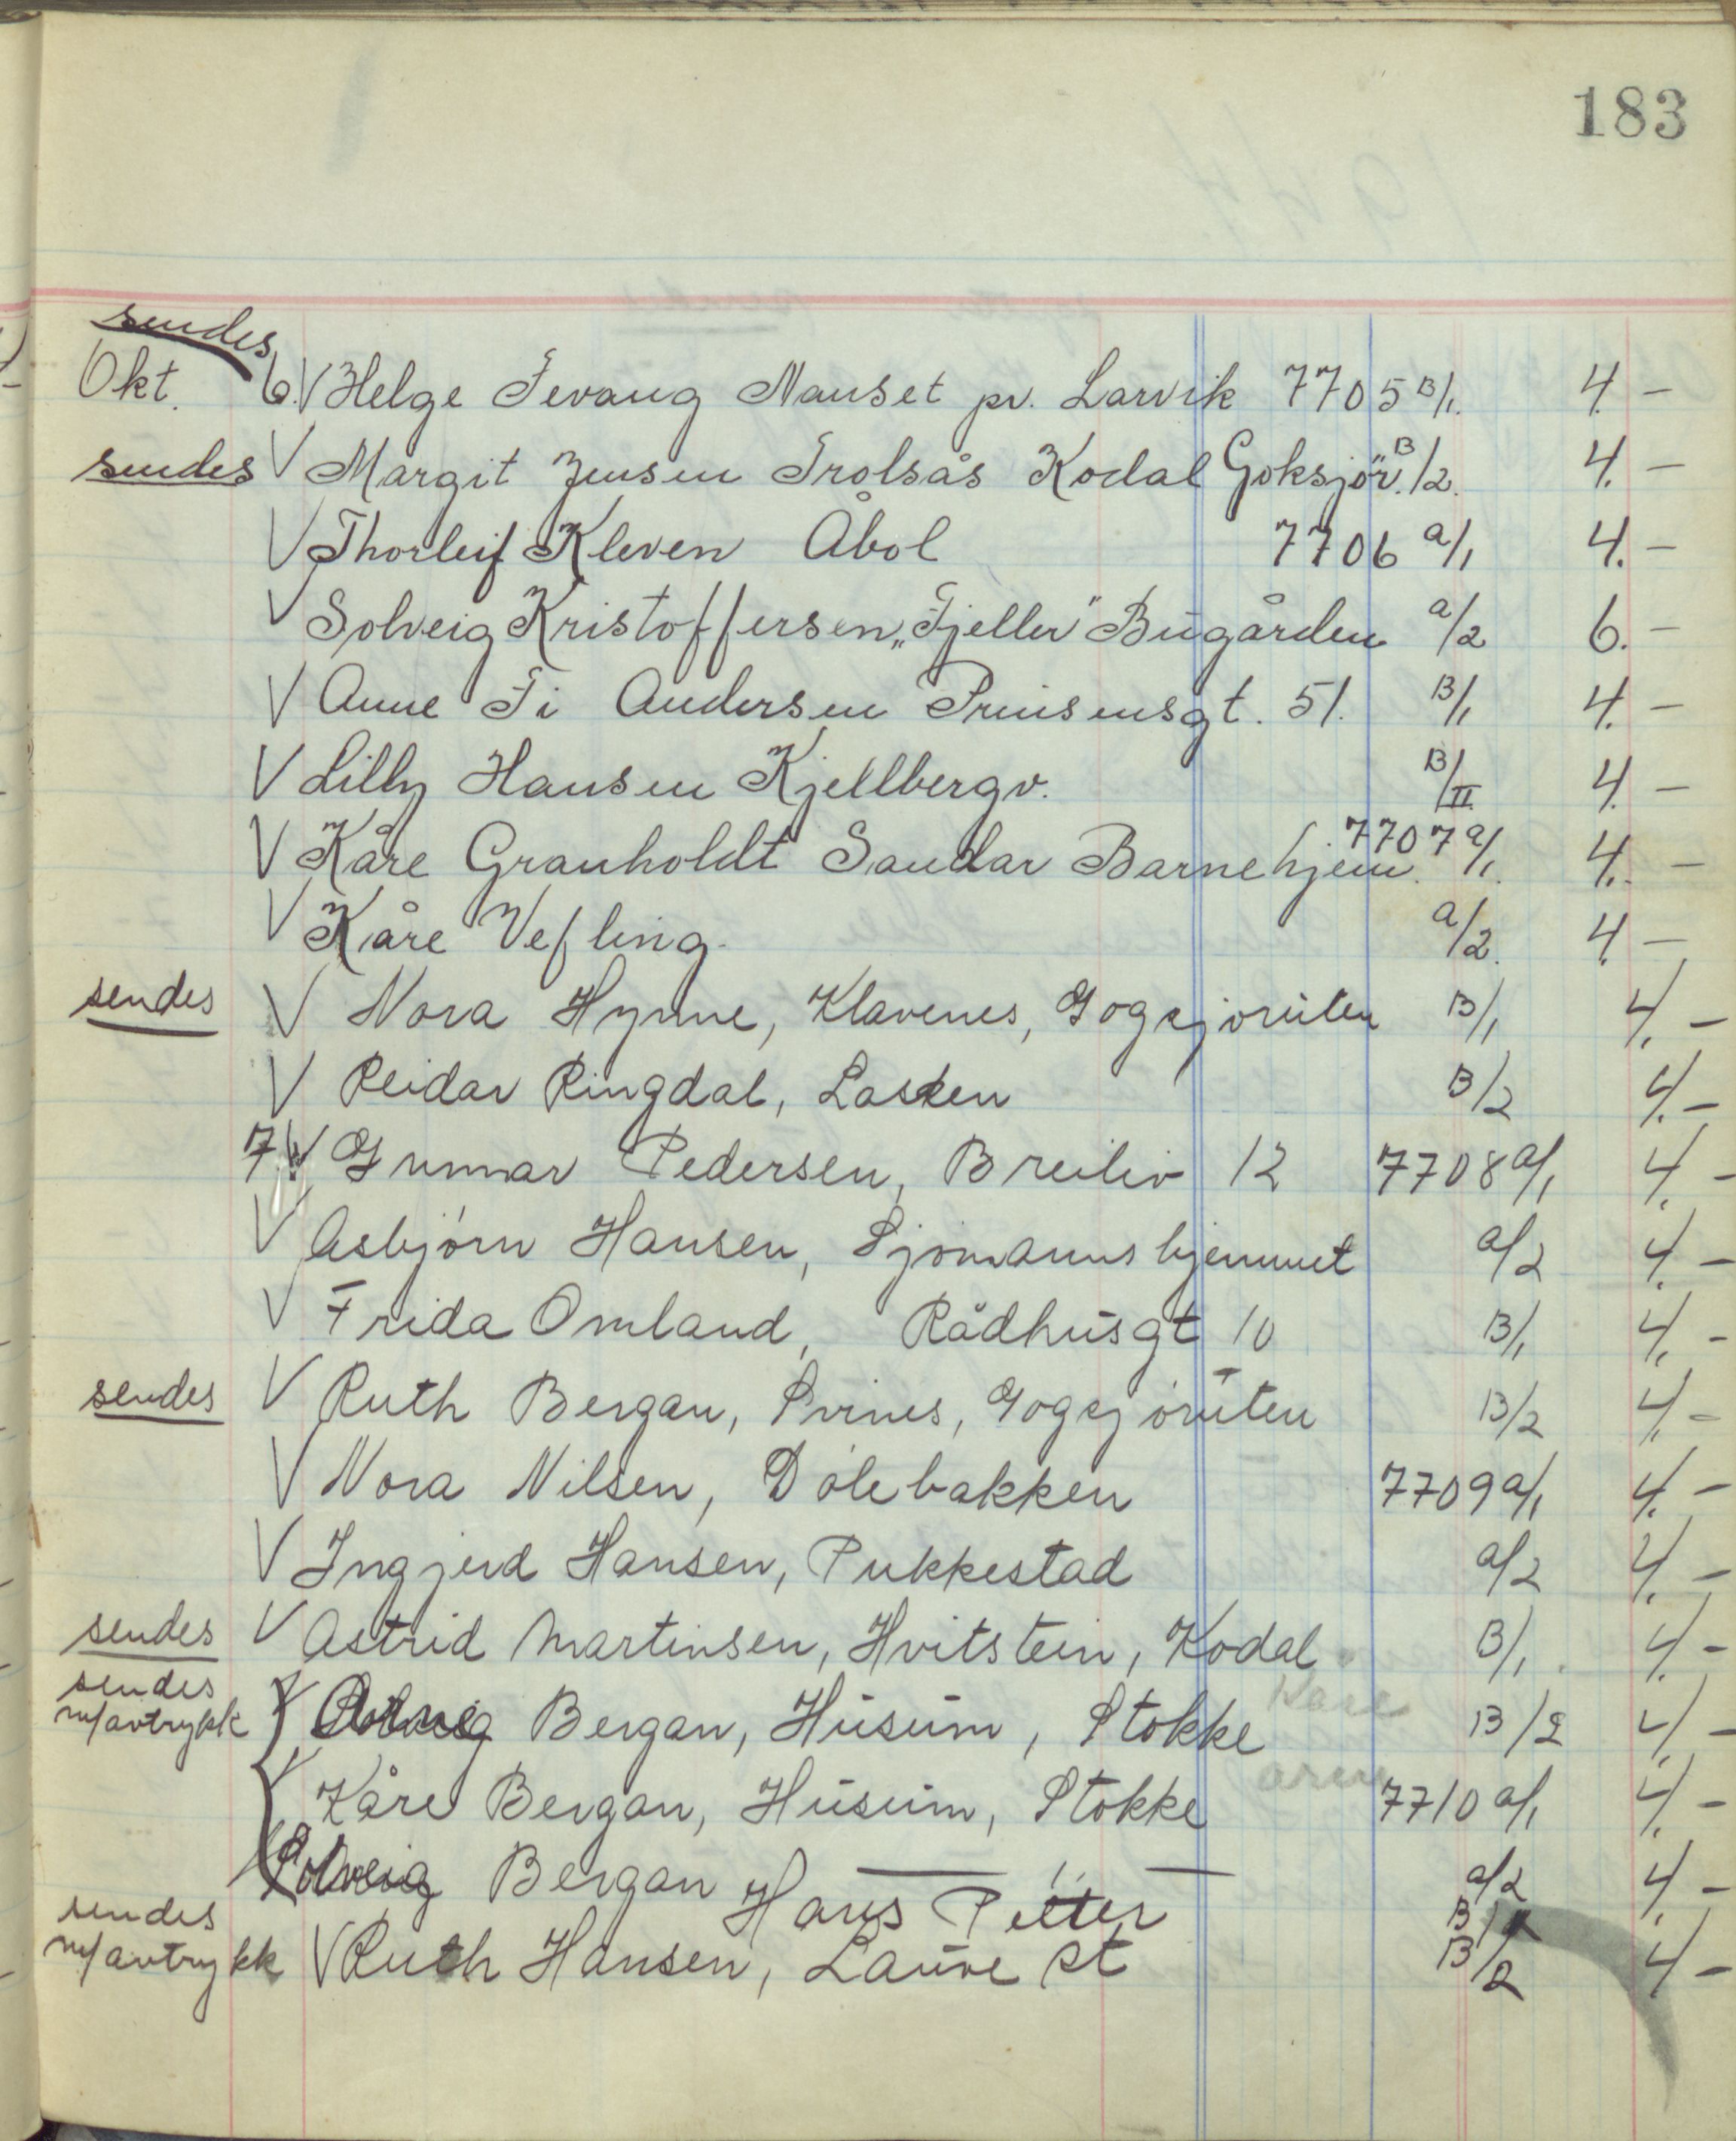 183
sendes
Okt. 6. V Helge Tevang Nauset pr. Larvik 7705 B/1. 4.-
sendes V Margit Jensen Trolsås Kodal Goksjør. B/2. 4.-
V Thorleif Kleven Åbol 7706 a/1 4.-
V Solveig Kristoffersen „Fjeller" Bugården a/2 6.-
V Anne Ti Andersen Prinsensgt. 51. B/1 4.-
V Lilly Hansen Kjellbergv. B/II 4.-
V Kåre Granholdt Sandar Barnehjem. 7707 a/1. 4.-
V Kåre Vefling. a/2. 4.-
sendes V Nora Hynne, Klavenes, Gogsjøruten B/1 4.-
V Reidar Ringdal, Lasken B/2 4.-
7. V Gunnar Pedersen, Breiliv 12 7708 a/1 4.-
V Asbjørn Hansen, Sjømannshjemmet a/2 4.-
V Frida Omland, Rådhusgt 10 B/1 4.-
sendes V Ruth Bergan, Svines, Gogsjøruten B/2 4.-
V Nora Nilsen, Dølebakken 7709 a/1 4.-
V Ingjerd Hansen, Pukkestad a/2 4.-
sendes V Astrid Martinsen, Hvitstein, Kodal B/1. 4.-
sendes
m/avtrykk V Bergan, Husum, Stokke Kåre B/2 4.-
V Kåre Bergan, Husum, Stokke arne 7710 a/1 4.-
V Solveig Bergan — " — a/2 4.-
Hans Petter B/1
sendes
m/avtrykk V Ruth Hansen, Lauve st B/2 4.-